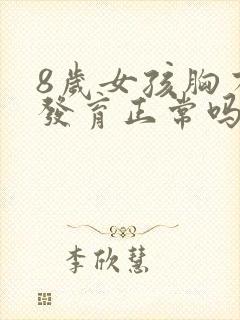 8歲女孩胸
發育正常吗
李欣慧